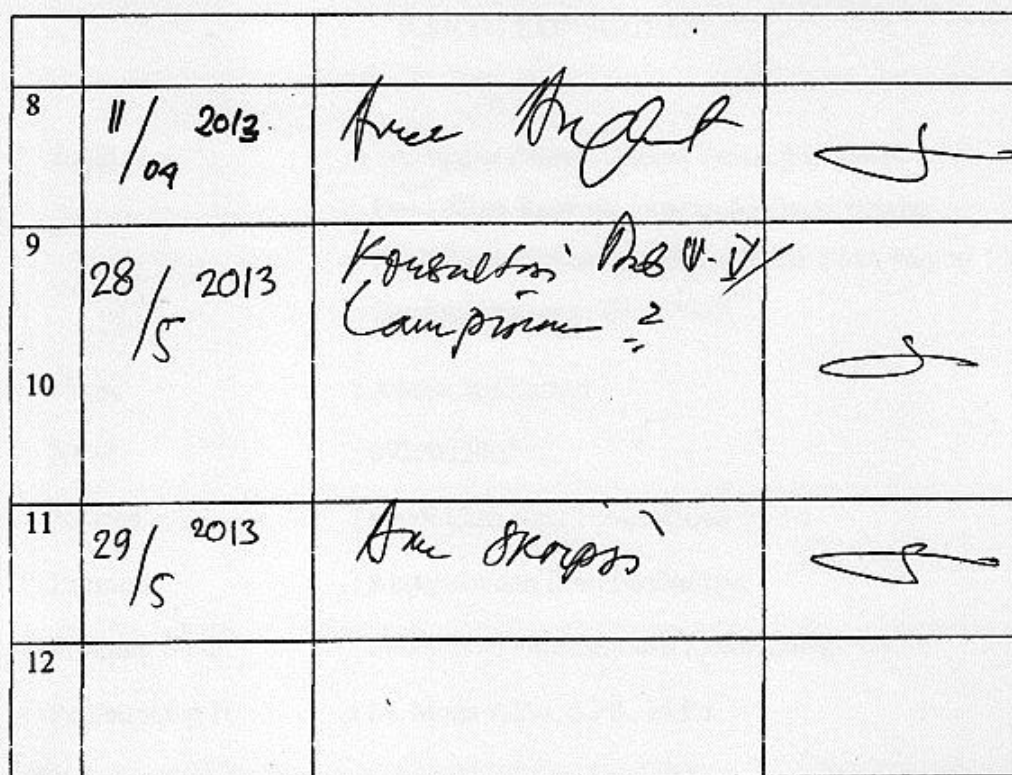 8 11/09 2013 Acc
9 28/5 2013 Konsultasi Bab V-IV
Lampiran 2
10
11 29/5 2013 Acc Skripsi
12